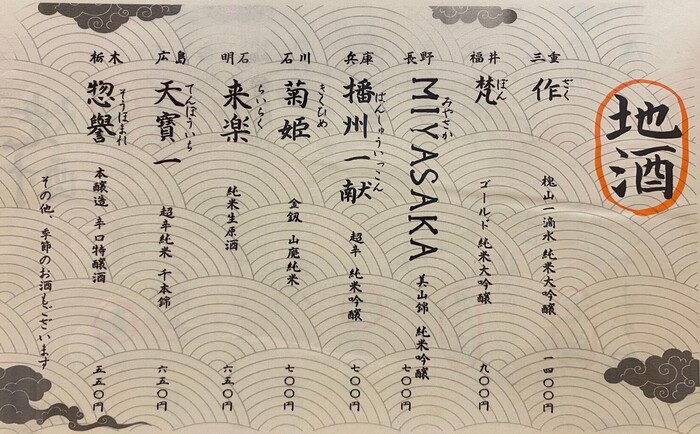 地酒
三重
作
ざく
槐山一滴水 純米大吟醸
一四〇〇円
福井
梵
ぼん
ゴールド 純米大吟醸
九〇〇円
長野
MIYASAKA
みやさか
美山錦 純米吟醸
七〇〇円
兵庫
播州一献
ばんしゅういっこん
超辛 純米吟醸
七〇〇円
石川
菊姫
きくひめ
金劔 山廃純米
七〇〇円
明石
来楽
らいらく
純米生原酒
六五〇円
広島
天寶一
てんぽういち
超辛純米 千本錦
六五〇円
栃木
惣譽
そうほまれ
本醸造 辛口特醸酒
五五〇円
その他、季節のお酒もございます